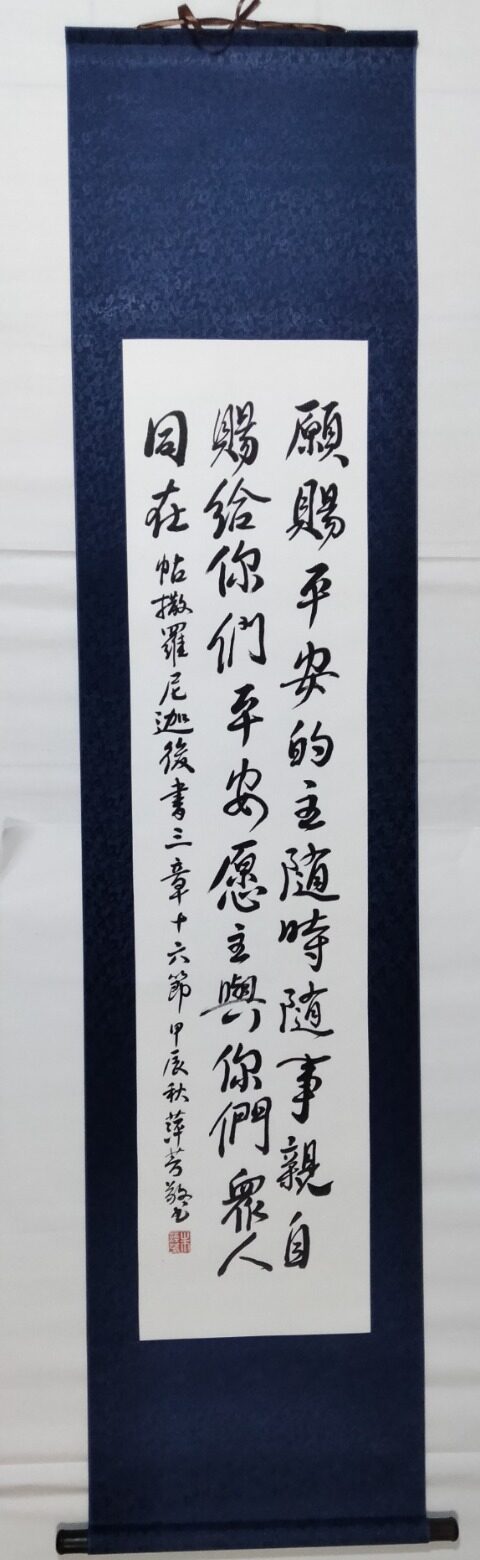 願賜平安的主隨時隨事親自
賜給你們平安愿主與你們眾人
同在 帖撒羅尼迦後書三章十六節 甲辰秋 萍芳敬書